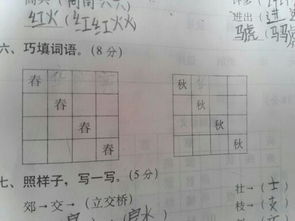 红火（红红火火
进出（进进
马虎（马马虎
六、巧填词语。（8分）
春 秋
春 秋
春 秋
春 秋
七、照样子，写一写。（5分）
郊→交→（立交桥） 壮→（士）
枝→（支）